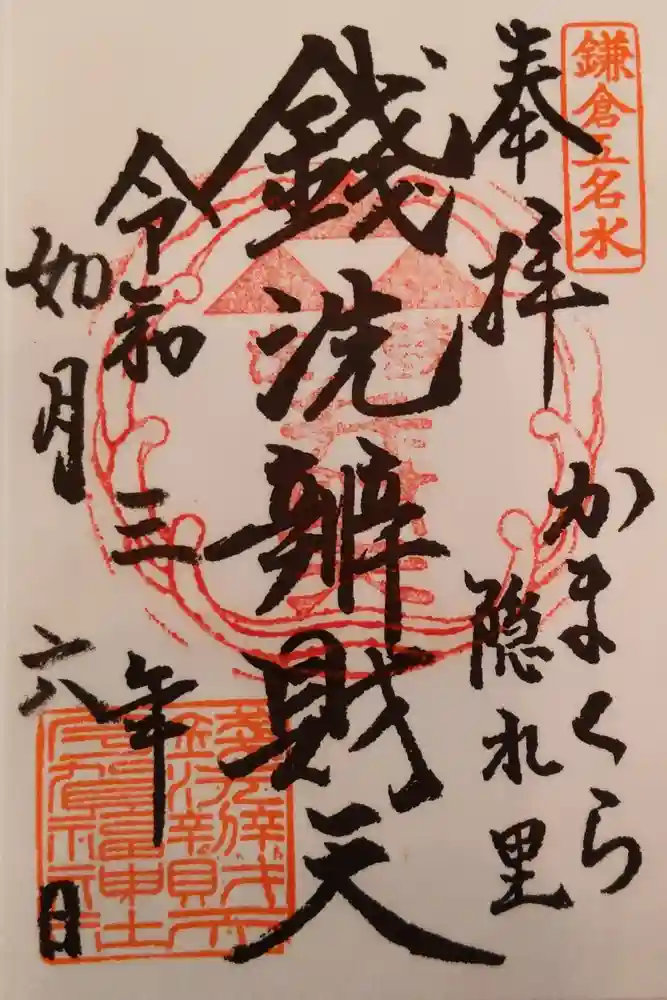 鎌倉五名水
奉拝
かまくら
隠れ里
銭洗辨財天
令和三年
如月六日